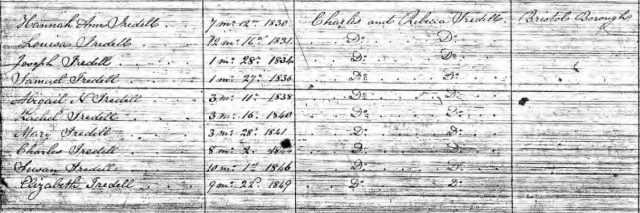 Hannah Ann Iredell 7 mo: 12th 1830. Charles and Rebecca Iredell. Bristol Borough
Louisa Iredell 12 mo: 16th 1831. Do Do
Joseph Iredell 1 mo: 28th 1834 Do Do
Samuel Iredell 1 mo: 27th 1836 Do Do
Abigail H Iredell 3 mo: 11th 1838 Do Do
Rachel Iredell 3 mo: 16. 1840 Do Do
Mary Iredell 3 mo: 28th 1841 Do Do
Charles Iredell 8 mo: 2. Do Do
Susan Iredell 10 mo: 1st 1846 Do Do
Elizabeth Iredell 9 mo: 22d 1849 Do Do